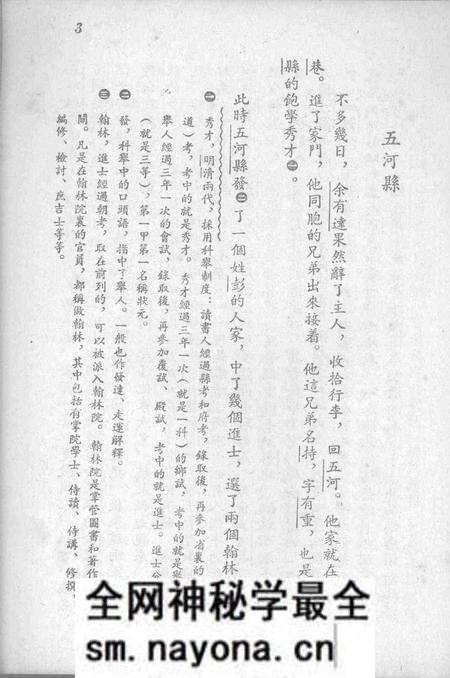 3
五河縣
不多幾日，余有達果然辭了主人，收拾行李，回五河。他家就在
巷。進了家門，他同胞的兄弟出來接着。他這兄弟名持，字有重，也是
縣的飽學秀才㊀。
此時五河縣發㊁了一個姓彭的人家，中了幾個進士，選了兩個翰林
㊀ 秀才，明清兩代，採用科舉制度：讀書人經過縣考和府考，錄取後，再參加省裏的
道）考，考中的就是秀才。秀才經過三年一次（就是一科）的鄉試，考中的就是舉
舉人經過三年一次的會試，錄取後，再參加覆試、殿試，考中的就是進士。進士分
（就是三等），第一甲第一名稱狀元。
㊁ 發，科舉中的口頭語，指中了舉人。一般也作發達、走運解釋。
㊂ 翰林，進士經過朝考，取在前列的，可以被派入翰林院。翰林院是掌管圖書和著作
關。凡是在翰林院裏的官員，都稱做翰林，其中包括有掌院學士、侍讀、侍講、修撰、
編修、檢討、庶吉士等等。
全网神秘学最全
sm.nayona.cn